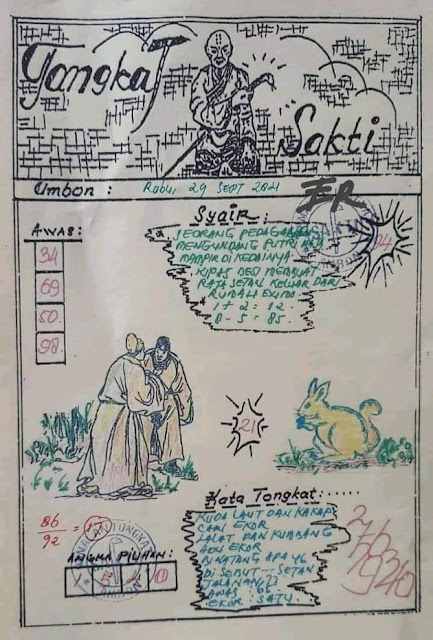 Tongkat
Sakti
Umbon :
Rabu, 29 SEPT 2021
Syair :
AWAS :
34
69
50.
98.
SEORANG PEDAGANG
MENGUNDANG PUTRI
MAMPIR DI KEDAINYA.
KIPAS BESI MEMBUAT
RAJA SETAN KELUAR DARI
RUMAH
1 + 2 = 12.
8 - 5 = 85.
21
Kata Tongkat : ......
KUDA LAUT DAN KAKAP
CARI EKOR
LALAT DAN KUMBANG
ADU EKOR
BINATANG APA YG
DI SEBUT - - SETAN
JALANAN ??
AWAS 65.
EKOR : SATU.
86
92
= 17
ANGKA PILIHAN :